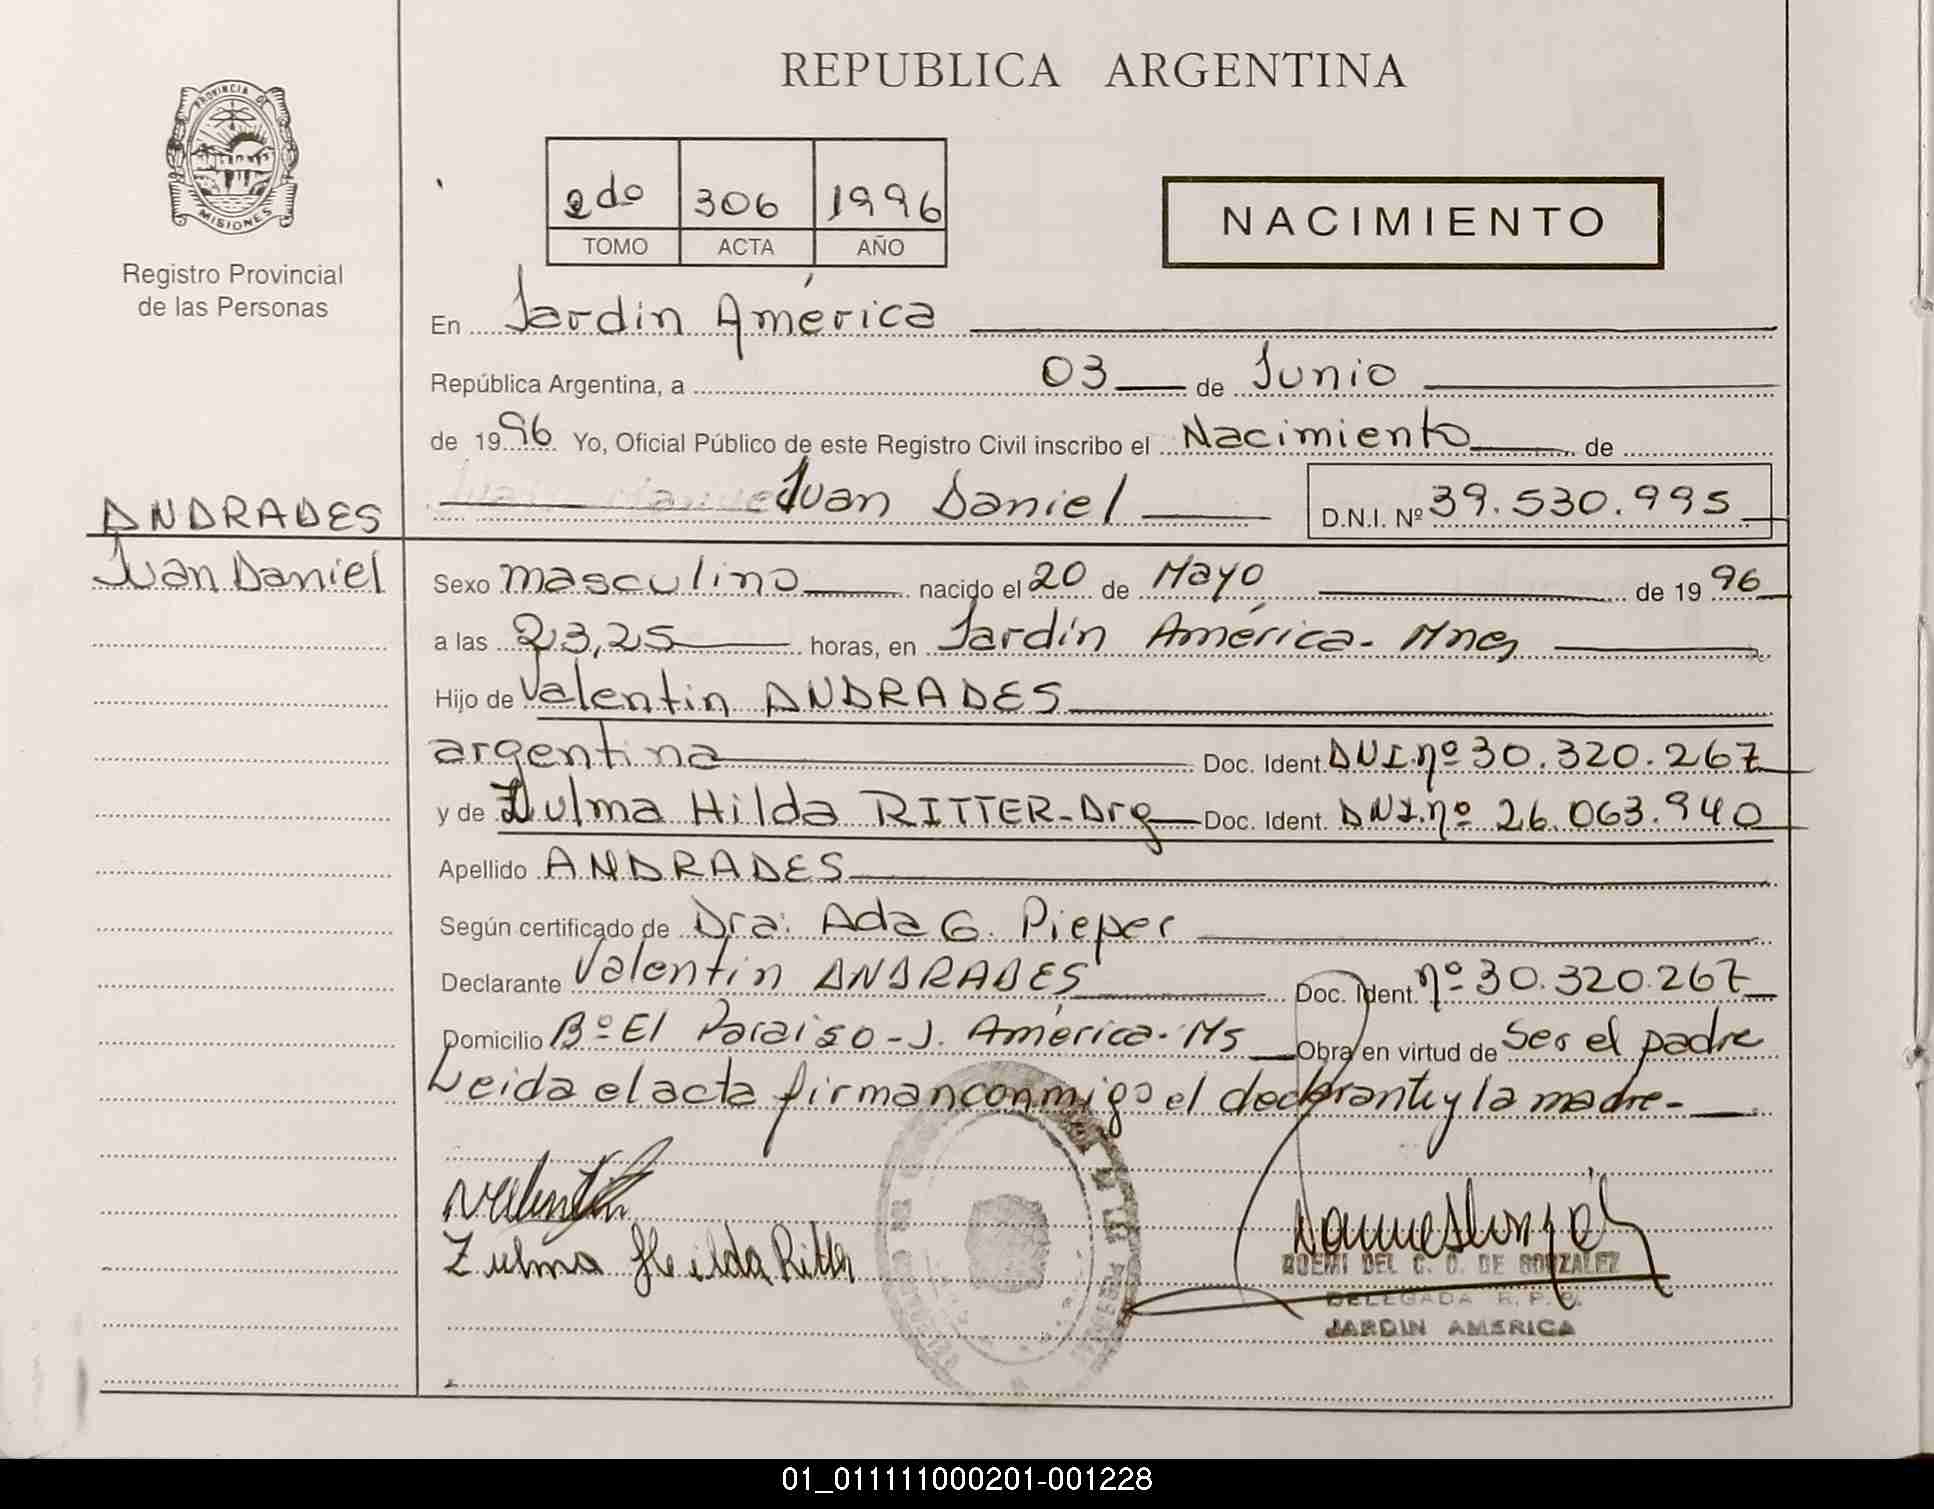 REPUBLICA ARGENTINA
PROVINCIA DE
MISIONES
Registro Provincial
de las Personas
2do 306 1996
TOMO ACTA AÑO
NACIMIENTO
En Jardín América
República Argentina, a 03 de Junio
de 1996 Yo, Oficial Público de este Registro Civil inscribo el Nacimiento de
Juan Daniel D.N.I. Nº 39.530.995
ANDRADES
Juan Daniel
Sexo masculino nacido el 20 de Mayo de 1996
a las 23,25 horas, en Jardín América - Mnes
Hijo de Valentin ANDRADES
argentina Doc. Ident. DNI. nº 30.320.267
y de Zulma Hilda RITTER - Arg Doc. Ident. DNI. nº 26.063.940
Apellido ANDRADES
Según certificado de Dra: Ada G. Pieper
Declarante Valentin ANDRADES Doc. Ident. nº 30.320.267
Domicilio Bº El Paraiso - J. América - Ms Obra en virtud de Ser el padre
Leida el acta firman conmigo el declarante y la madre -
Valentin
Zulma Heilda Ritter
NOEMI DEL C. O. DE GONZALEZ
DELEGADA R. P. P.
JARDIN AMERICA
01_011111000201-001228